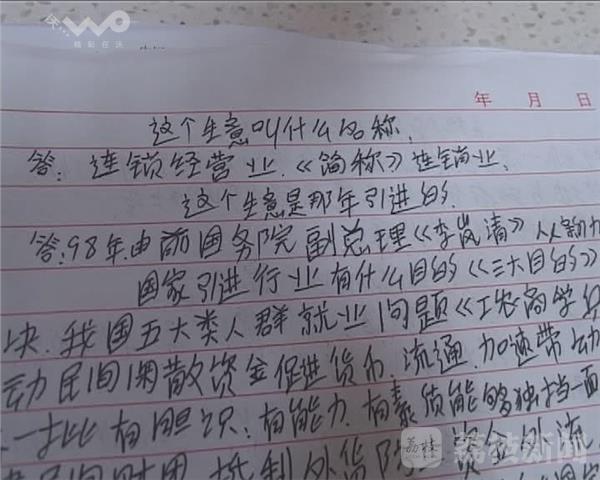 WO
精彩在沃
年 月 日
这个生意叫什么名称.
答: 连锁经营业.《简称》连锁业.
这个生意是那年引进的.
答:98年由前国务院副总理《李岚清》从
国家引进行业有什么目的《三大目的》
决.我国五大类人群就业问题《工农商学兵
动民间闲散资金促进货币.流通.加速带动
一批有胆识.有能力.有素质能够独挡一面
抵制外货
资金外流
荔枝新闻